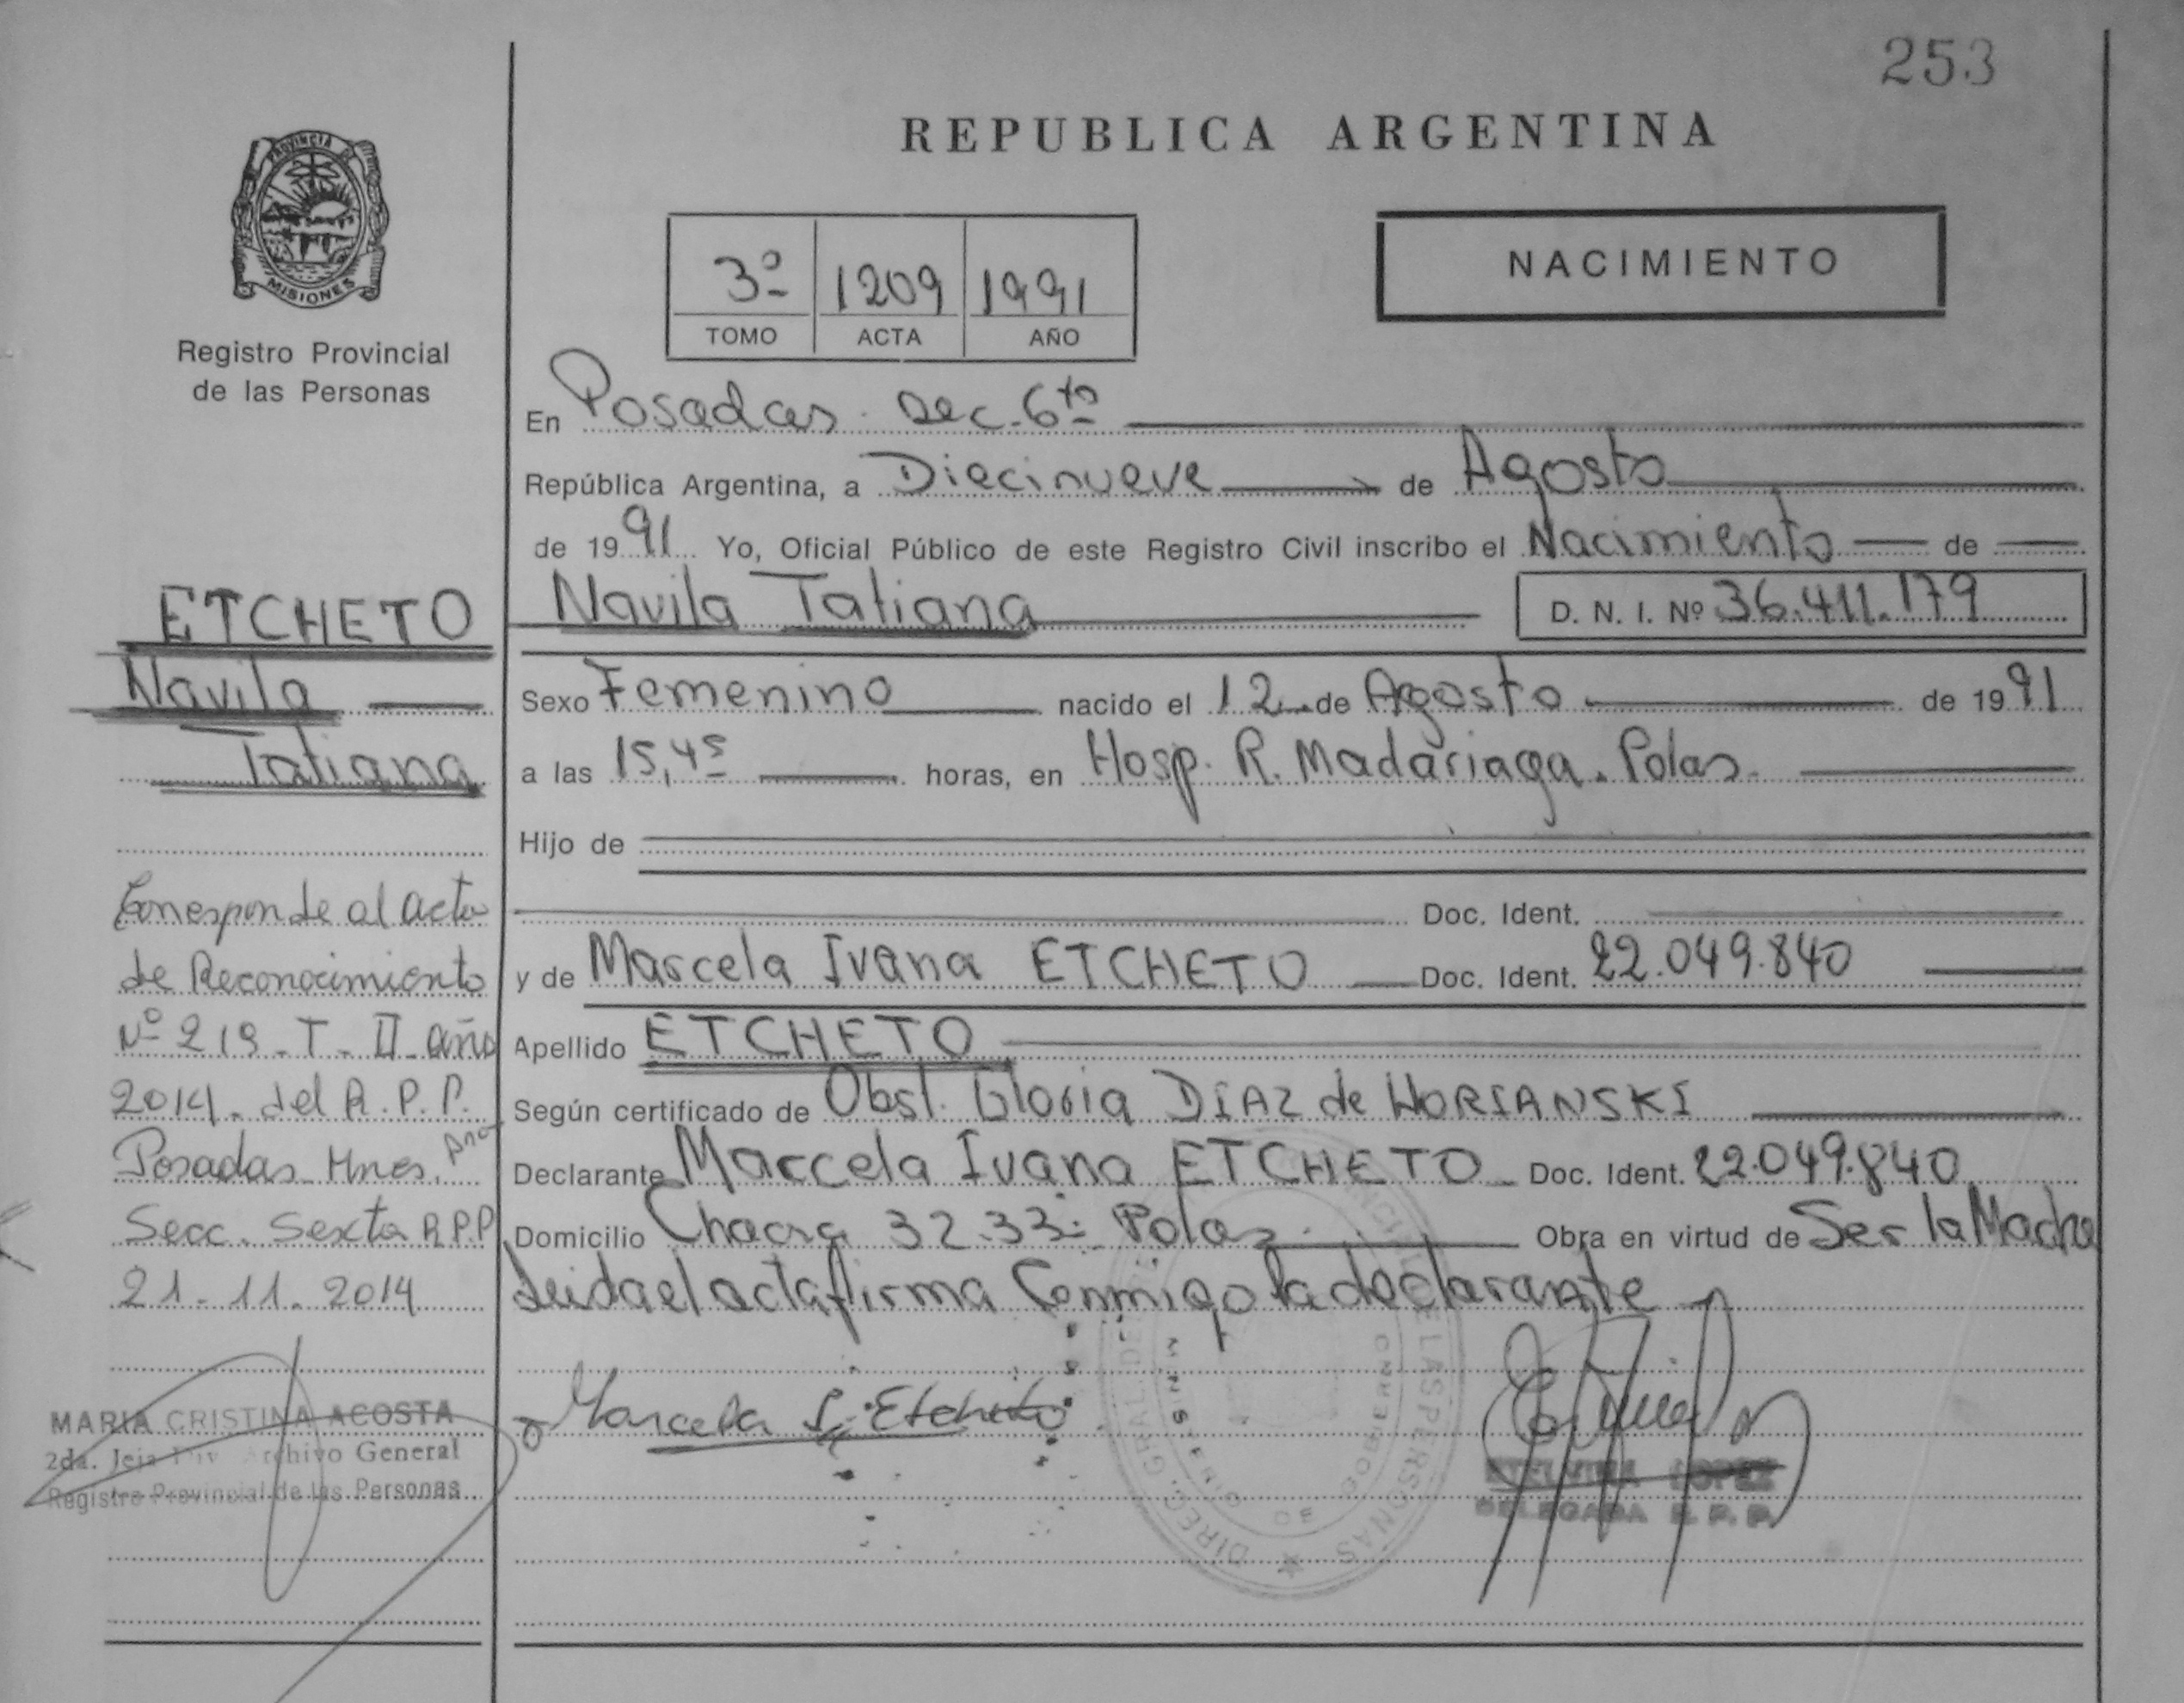 253
REPUBLICA ARGENTINA
PROVINCIA DE
MISIONES
Registro Provincial
de las Personas
3º 1209 1991
TOMO ACTA AÑO
NACIMIENTO
En Posadas Sec. 6ta
República Argentina, a Diecinueve de Agosto
de 1991 Yo, Oficial Público de este Registro Civil inscribo el Nacimiento de
Navila Tatiana D. N. I. Nº 36.411.179
Sexo Femenino nacido el 12 de Agosto de 1991
a las 15,45 horas, en Hosp. R. Madariaga. Pdas.
Hijo de
Doc. Ident.
y de Marcela Ivana ETCHETO Doc. Ident. 22.049.840
Apellido ETCHETO
Según certificado de Obst. Gloria DIAZ de HORIANSKI
Declarante Marcela Ivana ETCHETO Doc. Ident. 22.049.840
Domicilio Chacra 32.33 Pdas Obra en virtud de Ser la Madre
Leida el acta firma Conmigo la declarante
Marcela I. Etcheto
ETELVINA LOPEZ
DELEGADA R. P. P.
DIREC. GRAL. DE LAS PERSONAS
MINISTERIO DE GOBIERNO
ETCHETO
Navila
Tatiana
Corresponde al acta
de Reconocimiento
Nº 219 - T - II - año
2014 - del R.P.P.
Posadas Mnes.
Secc. Sexta R.P.P
21 - 11 - 2014
MARIA CRISTINA ACOSTA
2da. Jefa Div. Archivo General
Registro Provincial de las Personas